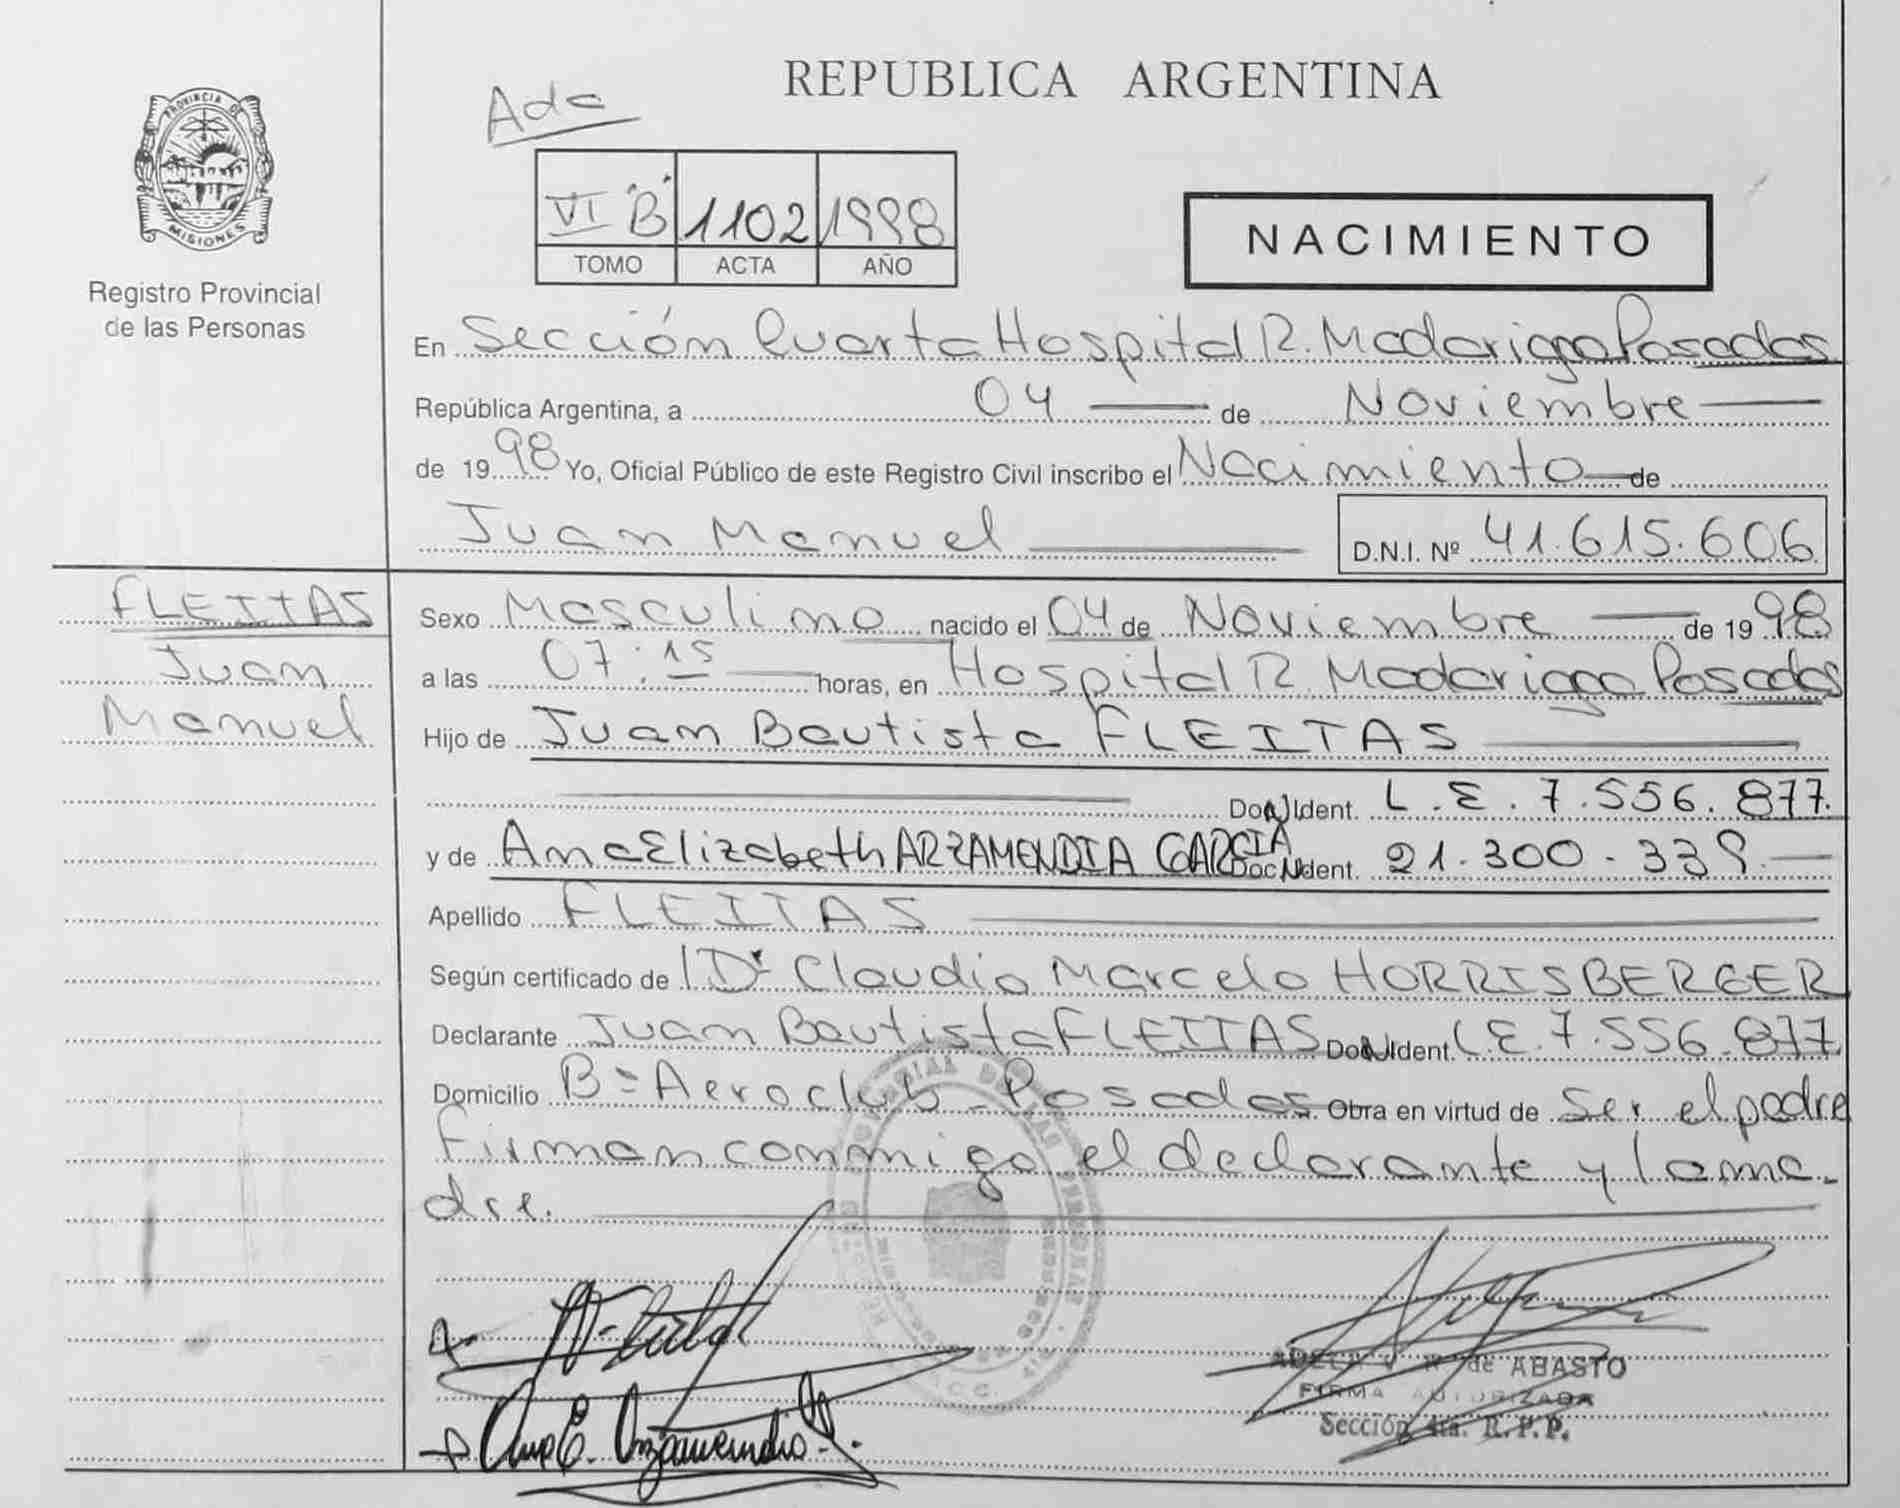 REPUBLICA ARGENTINA
Ada
PROVINCIA DE
MISIONES
Registro Provincial
de las Personas
VI "B" 1102 1998
TOMO ACTA AÑO
NACIMIENTO
En Sección Cuarta Hospital R. Madariaga Posadas
República Argentina, a 04 de Noviembre
de 1998 Yo, Oficial Público de este Registro Civil inscribo el Nacimiento de
Juan Manuel D.N.I. Nº 41.615.606
FLEITAS
Juan
Manuel
Sexo Masculino nacido el 04 de Noviembre de 1998
a las 07:15 horas, en Hospital R. Madariaga Posadas
Hijo de Juan Bautista FLEITAS
Doc. Ident. L.E. 7.556.877.
y de Ana Elizabeth ARZAMENDIA GARCIA Doc. Ident. 21.300.339.
Apellido FLEITAS
Según certificado de Dr Claudio Marcelo HORRISBERGER
Declarante Juan Bautista FLEITAS Doc. Ident. L.E. 7.556.877
Domicilio Bº Aeroclub - Posadas Obra en virtud de Ser el padre
firman conmigo el declarante y la ma-
dre.
Ana E. Arzamendia
de ABASTO
FIRMA AUTORIZADA
Sección 4ta. R.P.P.